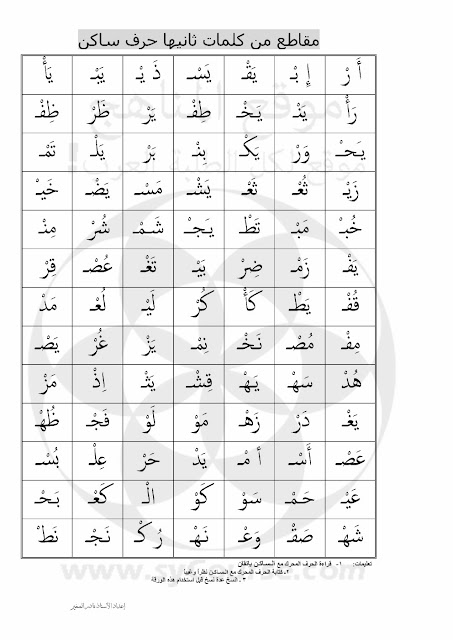 مقاطع من كلمات ثانيها حرف ساكن
أَ رْ إِ بْـ يَقْـ يَسْـ ذَ يْـ يَبْـ يَأْ
رَأْ يَنْـ يَخْـ طِفْـ يَرْ طَرْ ظِفْـ
يَحْـ وَرْ يَكْـ بِنْـ بَرْ يَلْـ تَمْـ
زَيْـ ثُعْـ ثَعْـ يَشْـ مَسْـ يَضْـ خَيْـ
خُبْـ مَبْـ تَطْـ يَجْـ شَمْـ شُرْ مِنْـ
يَفْـ زَمْـ ضِرْ بَيْـ تَغْـ عُصْـ قِرْ
قُفْـ يَطْـ كَأْ كُرْ لَيْـ لُعْـ مَدْ
مِفْـ مُصْـ نَخْـ نِمْـ يَزْ غُرْ يَصْـ
هُدْ سَهْـ يَهْـ قِشْـ يَثْـ إِذْ مَزْ
يَغْـ دَرْ زَهْـ مَوْ لَوْ فَجْـ ظُهْـ
عَصْـ أَسْـ أ مْـ يَدْ حَرْ عِلْـ بُسْـ
عَيْـ حَمْـ سَوْ كَوْ الْـ كَعْـ بَحْـ
شَهْـ صَقْـ وَعْـ نَهْـ رُكْـ نَجْـ نَطْـ
تعليمات: ١- قراءة الحرف المحرك مع الساكن بإتقان
٢- كتابة الحرف المحرك مع الساكن نظراً وغيباً
٣- انسخ عدة نسخ قبل استخدام هذه الورقة
إعداد الأستاذ نادر السفير